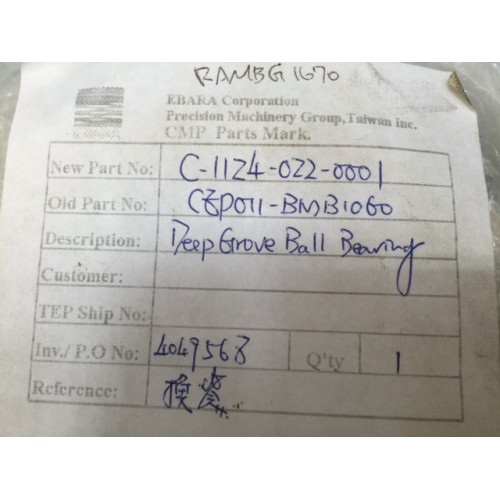 RAMBG1670
EBARA Corporation
Precision Machinery Group,Taiwan inc.
CMP Parts Mark.
New Part No: C-1124-022-0001
Old Part No: CEP011-BMB1060
Description: Deep Grove Ball Bearing
Customer:
TEP Ship No:
Inv./ P.O No: 4049568 Q'ty 1
Reference: 換